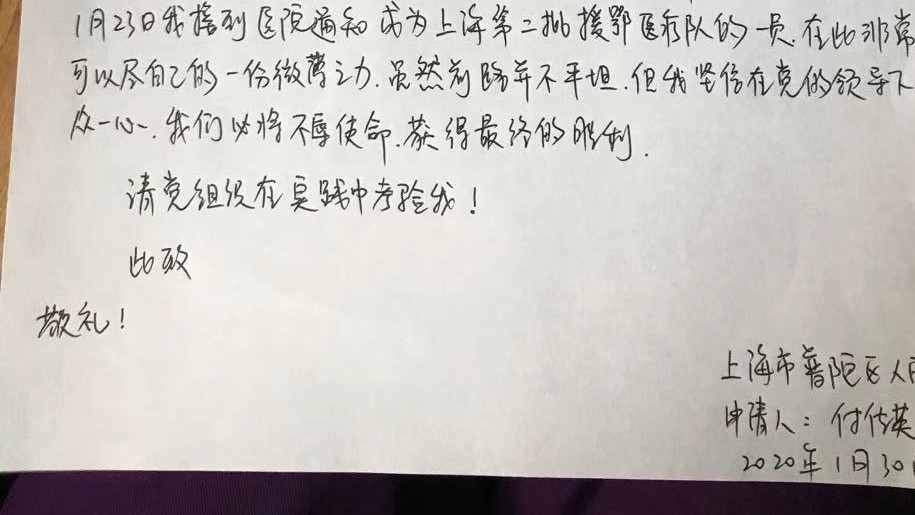 1月23日我接到医院通知成为上海第二批援鄂医疗队的一员.在此非常
可以尽自己的一份微薄之力.虽然前路并不平坦.但我坚信在党的领导下
众一心.我们必将不辱使命.获得最终的胜利.
请党组织在实践中考验我!
此致
敬礼!
上海市普陀区人民
申请人：付佳英
2020年1月30日